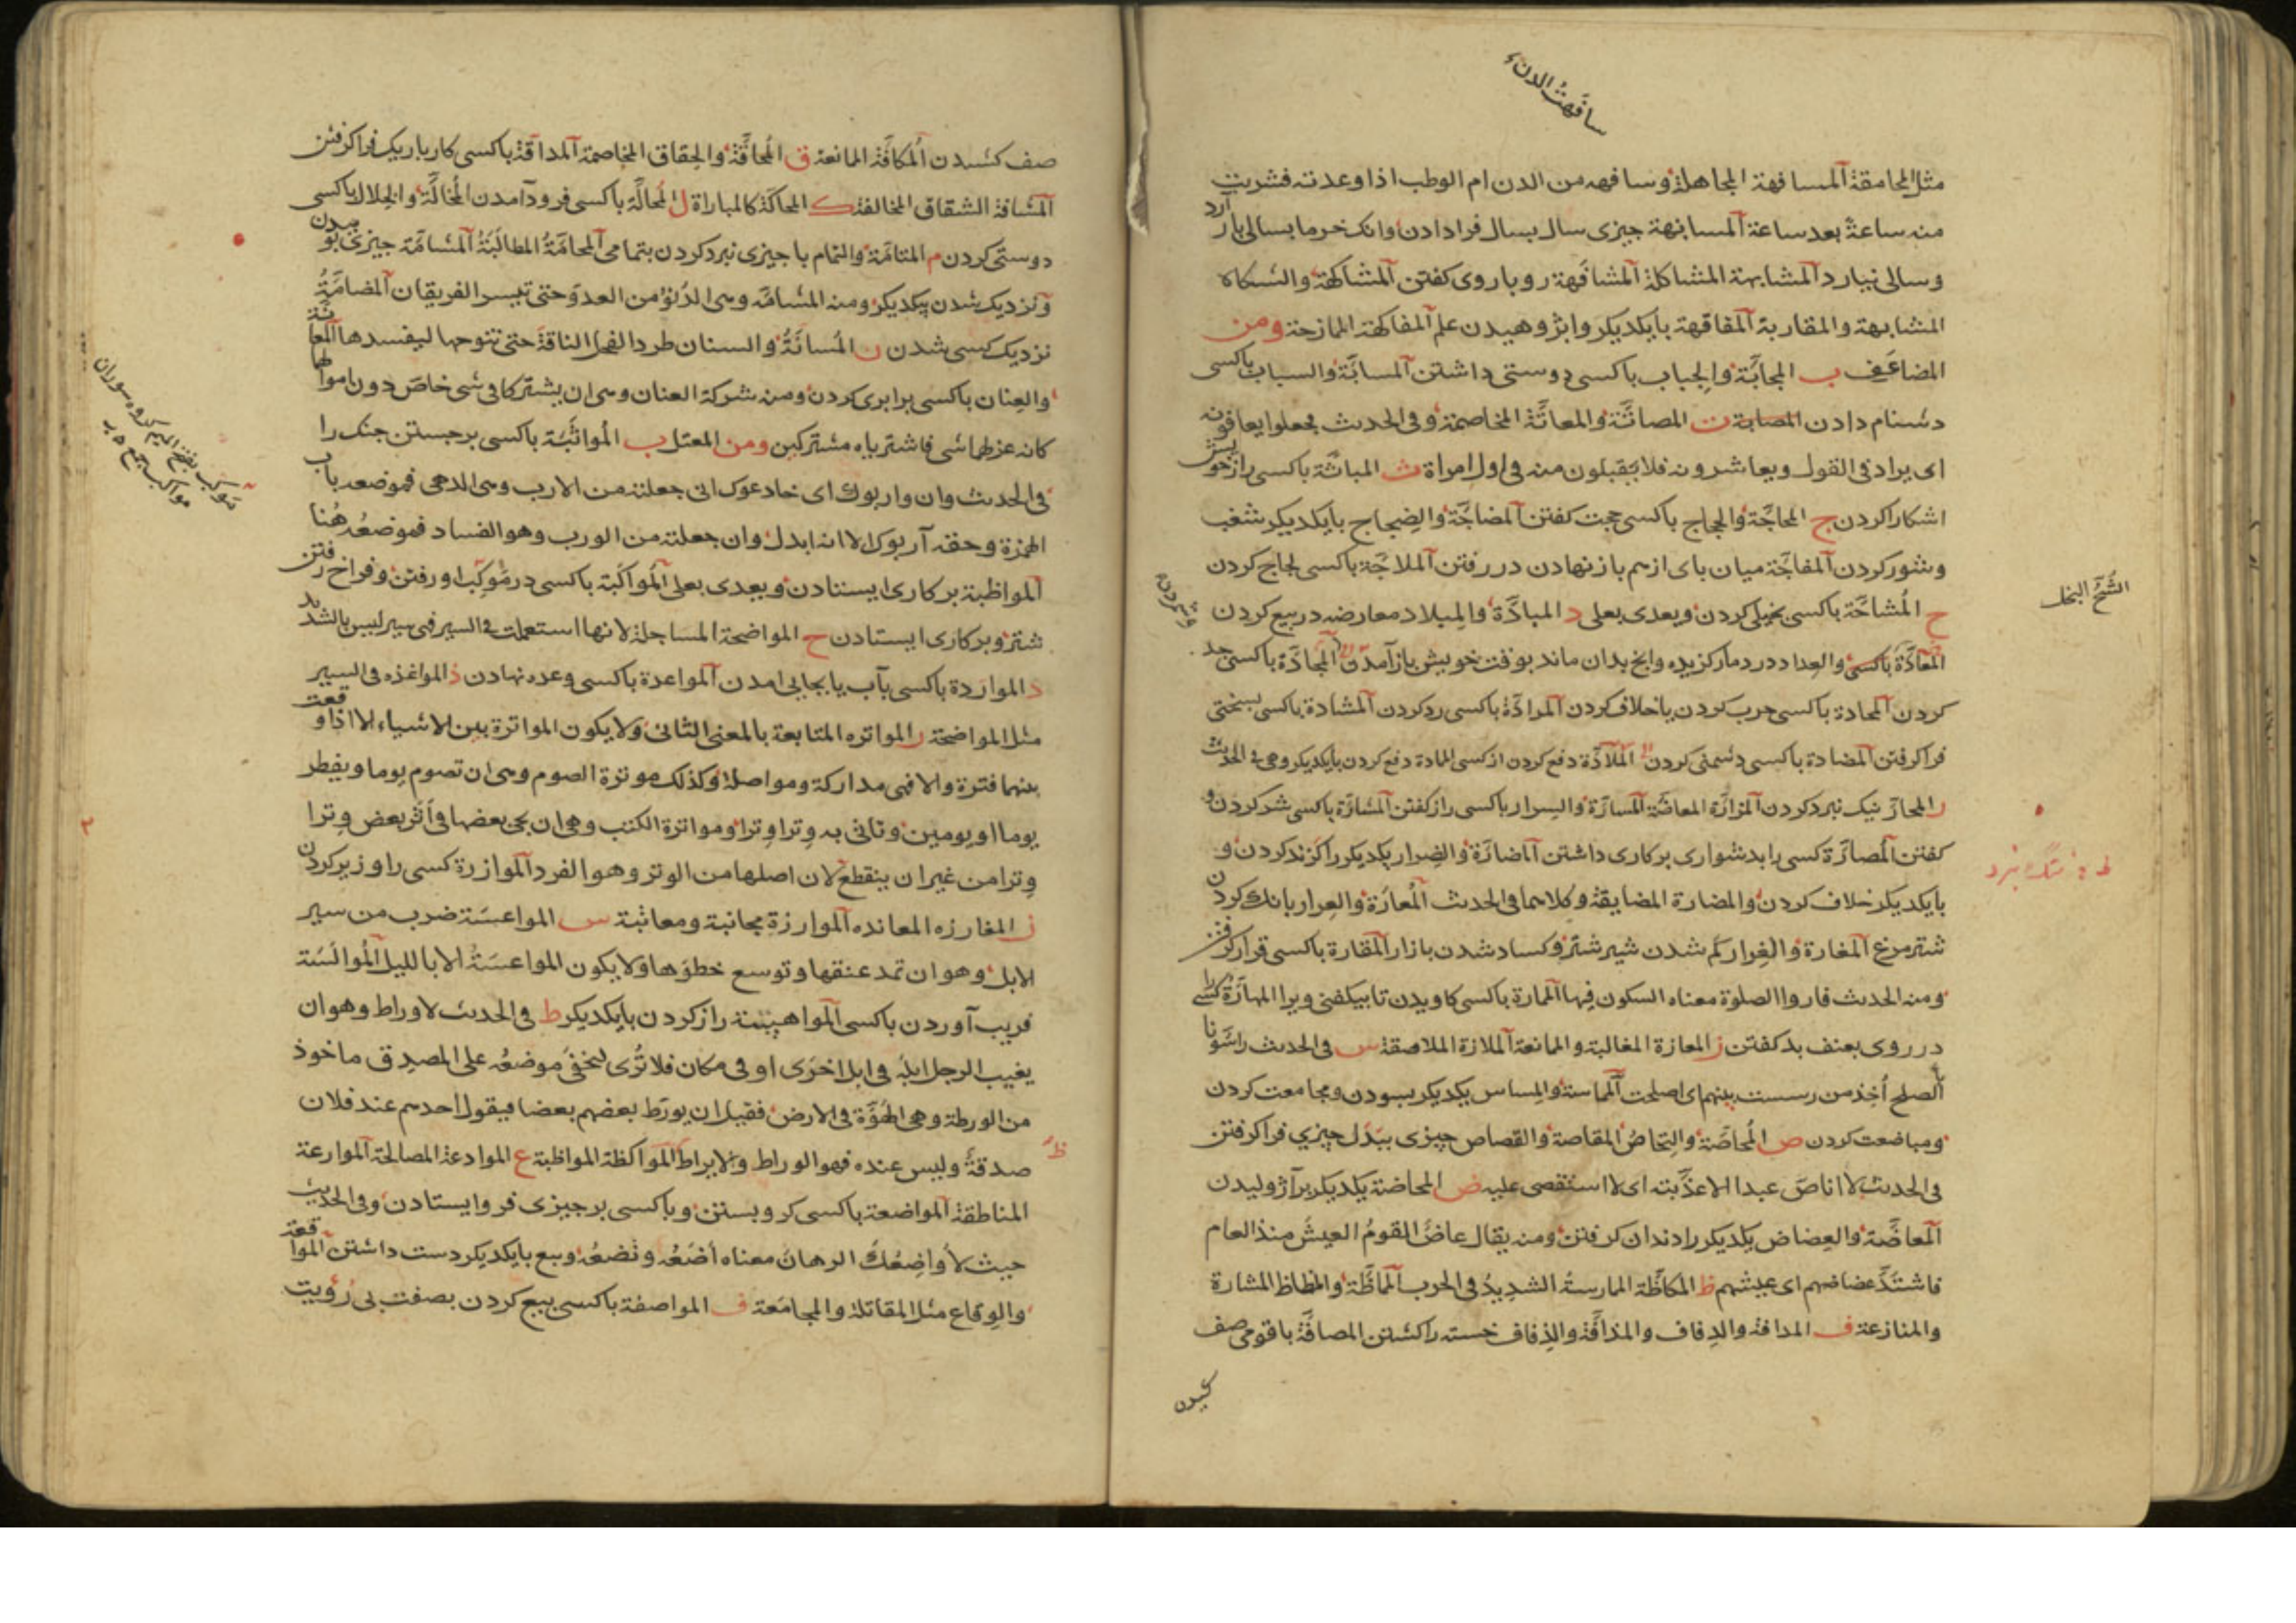 سافهتُ الدنّ
مثل المحامقة المسافهة المجاهلة وسافهه من الدن ام الوطب اذا وعدته فشربت
منه ساعةً بعد ساعة المسانهة چیزی سال بسال فرا دادن وانک خرما بسالی بار آرد
وسالی نیارد المشابهة المشاکلة المشافهة رو با روی کفتن المشاکهة
المشابهة والمقاربة المفاقهة بایکدیکر علم المفاکهة الممازحة ومن
المضاعف ب المحابّة والحِباب باکسی دوستی داشتن المسابّة والسباب باکسی
دشنام دادن ت المصاتّة والمعاتّة المخاصمة وفی الحدیث فجعلوا
ای یرادّ فی القول ویعاشرونه فلا یقبلون منه فی اول امراة ث المباثّة باکسی راز خویش
اشکارا کردن ج المحاجّة والحجاج باکسی حجت کفتن المضاجّة والضِجاج بایکدیکر شغب
وشور کردن المفاجّة میان پای از هم باز نهادن در رفتن الملاجّة باکسی لجاج کردن
ح المُشاحّة باکسی بخیلی کردن ویعدی بعلی د المبادّة والبِداد معارضه در بیع کردن
الشُحّ البخل
المعادّة باکسی والعِداد درد مار کزیده وانچ بدان ماند بوقت خویش باز آمدن المجادّة باکسی جد
کردن المحادة باکسی حرب کردن یا خلاف کردن المرادّة باکسی رد کردن المشادة باکسی بسختی
فرا کرفتن المضادة باکسی دشمنی کردن الملادّة دفع کردن از کسی المادة دفع کردن بایکدیکر وهی فی الحدیث
ر المجارّ نیک نبرد کردن المزارّة المعاضّة المسارّة والسِرار باکسی راز کفتن المشارّة باکسی شر کردن و
کفتن المُصارّة کسی را بدشواری بر کاری داشتن المضارّة والضِرار یکدیکر را کزند کردن و
بایکدیکر خلاف کردن والمضارة المضایقة وکلاهما فی الحدیث المُعارّة والعِرار بانک کردن
شتر مرغ المغارة والغِرار کم شدن شیر شتر وکساد شدن بازار المقارة باکسی قرار کرفتن
ومنه الحدیث قاروا الصلوة معناه السکون فیها الممارة باکسی کاویدن تا بیکفنی ویرا المهارّة کسی را
در روی بعنف بد کفتن ز المعازة المغالبة والممانعة الملازة الملاصقة س فی الحدیث راسّونا
الصلح اُخِذ من رسست بینهم ای اصلحت المماسة والمِساس یکدیکر بسودن ومجامعت کردن
ومباضعت کردن ص المُحاصّة والحِصاصُ المقاصة والقصاص چیزی ببَدَل چیزی فرا کرفتن
فی الحدیث لا اناصّ عبدا الا عذّبته ای لا استقصی علیه ض المحاضة یکدیکر بر آژولیدن
المعاضّة والعِضاض یکدیکر را دندان کرفتن ومنه یقال عاضّ القومُ العیشَ منذ العام
فاشتدّ عضاضهم ای عیشهم ظ المکاظّة الممارسةُ الشدیدُ فی الحرب المماظّة والمظاظ المشارة
والمنازعة ف المدافة والدِفاف والمذافّة والذِفاف خسته را کشتن المصافّة باقومی صف
کشیدن
صف کشیدن المُکافّة الممانعة ق المُحاقّة والحِقاق المخاصمة المداقة باکسی کار باریک فرا کرفتن
المشاقة الشقاق المخالفة ک المحاکّة کالمباراة ل المُحالّة باکسی فرود آمدن المُخالّة والخِلال باکسی
دوستی کردن م المتامّة والتمام با چیزی نبرد کردن بتمامی المحامّةُ المطالَبَةُ المشامّة چیزی بوییدن
ونزدیک شدن بیکدیکر ومنه المشامّه وهی الدُنوّ من العدوّ حتی الفریقان المضامّةُ
نزدیک کسی شدن ن المُسانّةُ والسنان طرد الفحل الناقةَ حتی تنوخها لیفسدها المعانّة
والعِنان باکسی برابری کردن ومنه شرکة العنان وهی ان یشترکا فی شی خاصّ دون اموالهما
کانه عن لهما شی فاشتریاه مشترکین ومن المعتل ب المُواثَبَة باکسی برجستن جنک را
فی الحدیث وان واربوک ای خادعوک اتی جعلته من الارب وهی الدهی فموضعه باب
الهمزة وحقه آربوک الا انه ابدل وان جعلته من الورب وهو الفساد فموضعُه هُنا
المواظبة بر کاری ایستادن ویعدی بعلی المُواکَبَة باکسی در مَوکِب او رفتن وفراخ رفتن
شتر وبر کاری ایستادن ح المواضحة المساجلة لانها استعملت فی السیر فهی سیر لیس بالشدید
د المواردة باکسی بآب یا بجایی امدن المواعدة باکسی وعده نهادن ذ المواغذه فی السیر
مثل المواضحة ر المواتره المتابعة بالمعنی الثانی ولا یکون المواترة بین الاشیاء الا اذا وقعت
بینهما فترة والا فهی مدارکة ومواصلة وکذلک مواترة الصوم وهی ان تصوم یوما ویفطر
یوما او یومین وتاتی به وِترا وِترا ومواترة الکتب وهی ان یجی بعضها فی اَثر بعض وِترا
وِترا من غیر ان ینقطع لان اصلها من الوتر وهو الفرد الموازرة کسی را وزیر کردن
ز المغارزه المعانده الموارزة مجانبة ومعاتبة س المواعسَة ضرب من سیر
الابل وهو ان تمد عنقها وتوسع خطوَها ولا یکون المواعسَةُ الا باللیل المُوالَسَة
فریب آوردن باکسی راز کردن بایکدیکر ط فی الحدیث لا وراط وهو ان
یغیب الرجل ابلَه فی ابل اخرَی او فی مکان فلا تُری لیخفی موضعُه علی المصدق ماخوذ
من الورطة وهی الهُوّة فی الارض فقیل ان یورّط بعضهم بعضا فیقول احدهم عند فلان
صدقةٌ ولیس عنده فهو الوراط والایراط المواکظة المواظبة ع الموادعة المصالحة الموارعة
المناطقة المواضعة باکسی کرو بستن وباکسی بر چیزی فرو ایستادن وفی الحدیث
حیث لاُواضِعُک الرهانَ معناه اَضَعُه وتَضعُه وبیع بایکدیکر دست داشتن المواقعة
والوِقاع مثل المقاتلة والمجامَعة ف المواصفة باکسی بیع کردن بصفت بی رُؤیت
موکب بفتح المیم کروه سوران
مواکب جمع